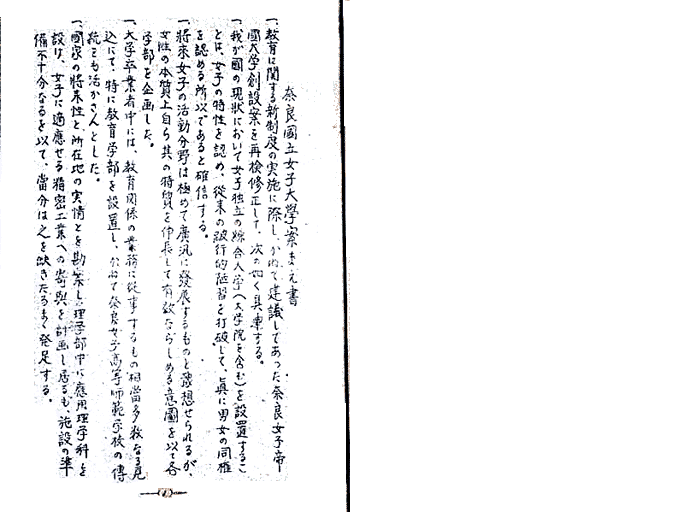 奈良國立女子大学案まえ書
一、教育に関する新制度の実施に際し、かねて建議してあった奈良女子帝
國大学創設案を再検修正して、次の如く具禀する。
一、我が國の現状において女子独立の綜合大学(大学院を含む)を設置するこ
とは、女子の特性を認め、従来の跛行的陋習を打破して、眞に男女の同権
を認める所以であると確信する。
一、将来女子の活動分野は極めて廣汎に發展するものと豫想せられるが、
女性の本質上自ら其の特質を伸長して有效ならしめる意圖を以て各
学部を企画した。
一、大学卒業者中には、教育関係の業務に従事するもの相當多数なる見
込にて、特に教育学部を設置し、かねて奈良女子高等師範学校の傳
統をも活かさんとした。
一、國家の将来性と所在地の実情とを勘案し、理学部中に應用理学科を
設け、女子に適應せる精密工業への寄與を計画し居るも、施設の準
備不十分なるを以て、當分は之を欠きたるまゝ発足する。